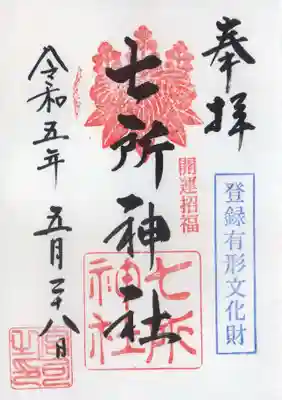 奉拝
登録有形文化財
開運招福
七所神社
七所
神社
令和五年 五月二十八日